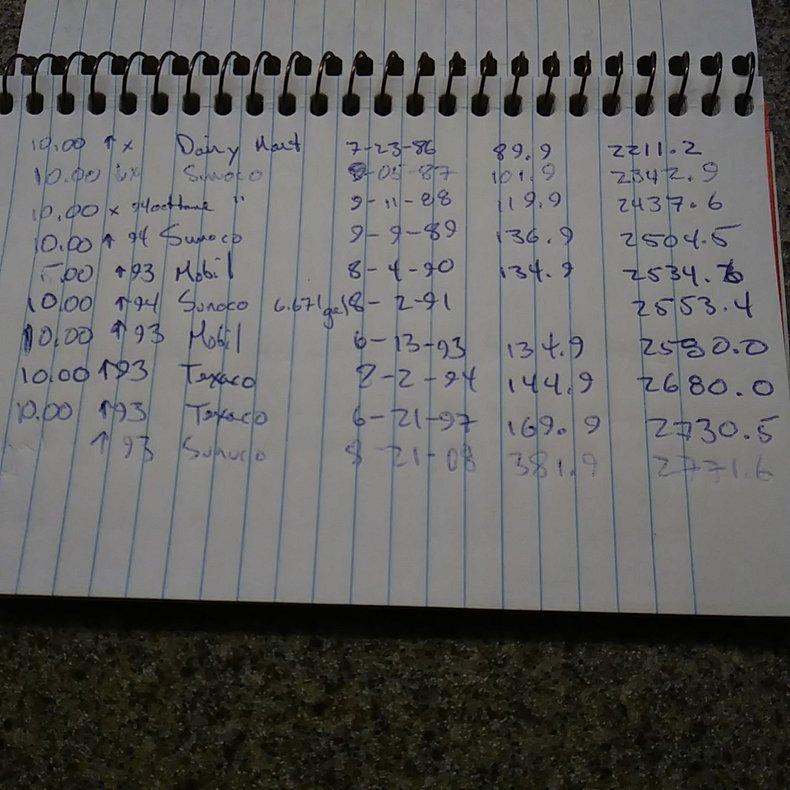 10.00 ↑ x Dairy Mart 7-23-86 89.9 2211.2
10.00 x Sunoco 9-05-87 101.9 2342.9
10.00 x 94octane " 9-11-88 119.9 2437.6
10.00 ↑ 94 Sunoco 9-9-89 136.9 2504.5
5.00 ↑93 Mobil 8-4-90 134.9 2534.7
10.00 ↑94 Sunoco 6.671gal 8-2-91 2553.4
10.00 ↑93 Mobil 6-13-93 134.9 2580.0
10.00 ↑93 Texaco 8-2-94 144.9 2680.0
10.00 ↑93 Texaco 6-21-97 169.9 2730.5
↑93 Sunoco 8-21-08 381.9 2771.6